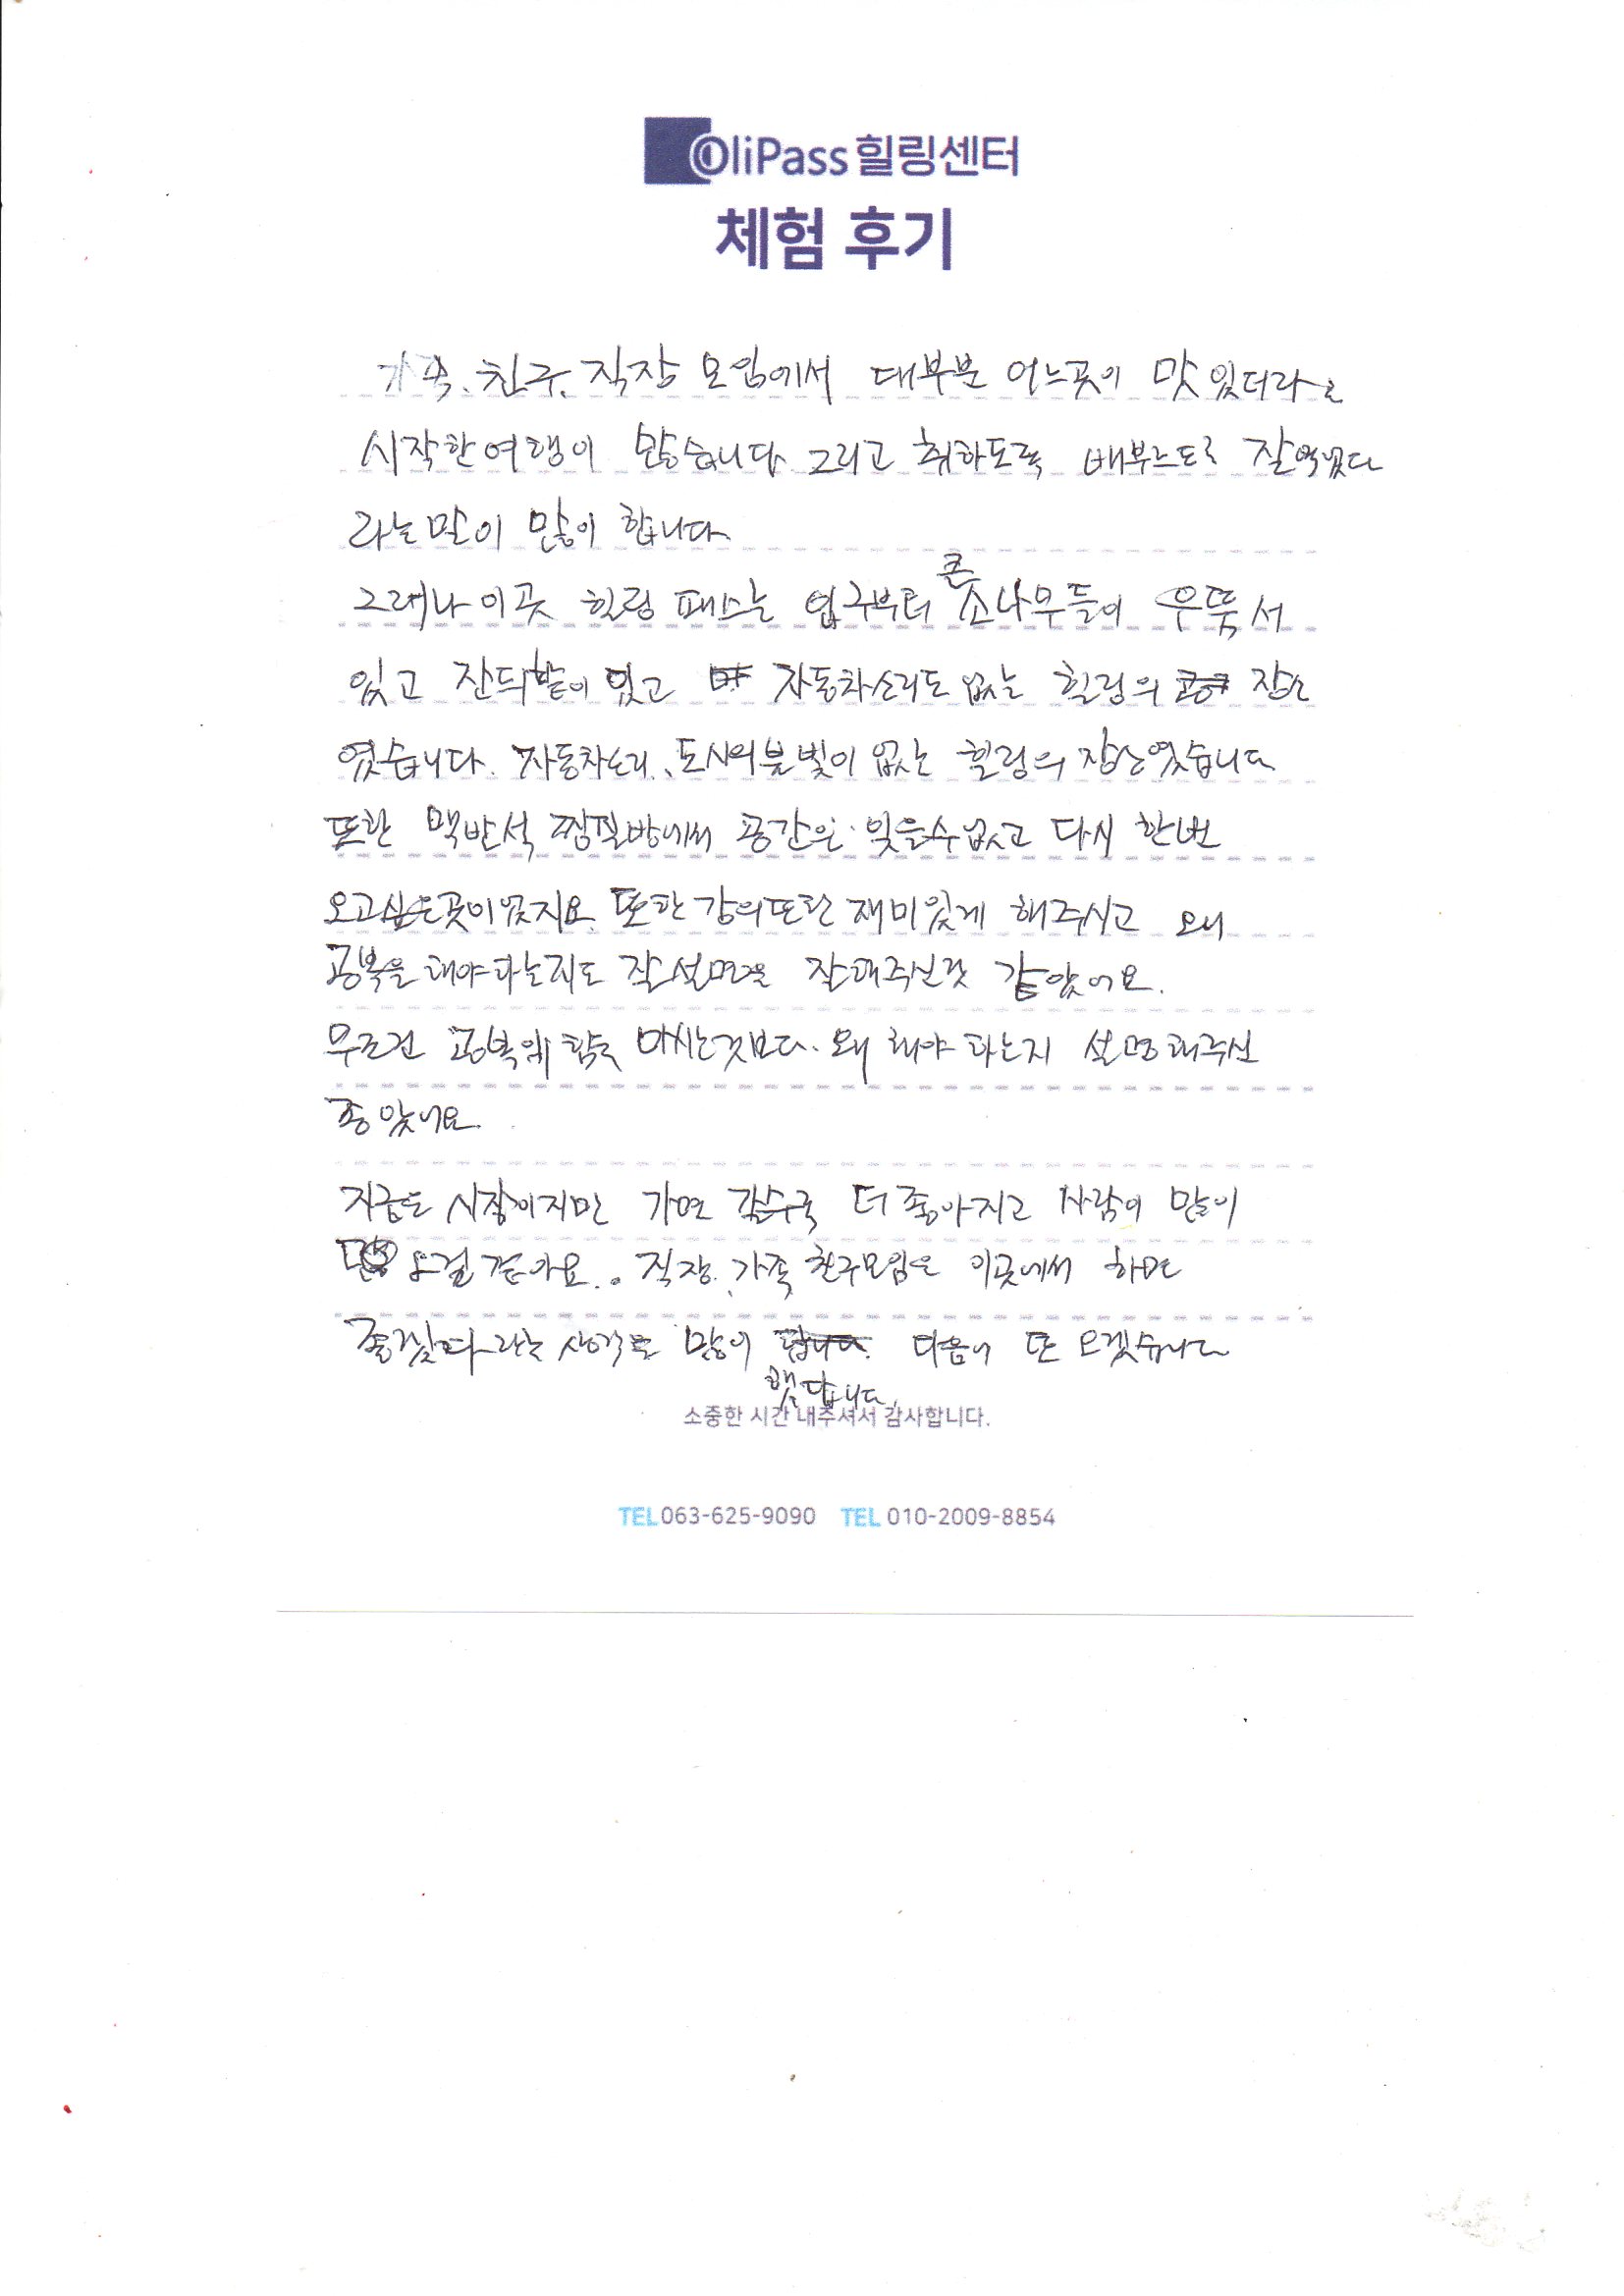 OliPass 힐링센터
체험 후기
가족. 친구. 직장 모임에서 대부분 어느곳이 맛있더라로
시작한여행이 많습니다. 그리고 취하도록 배부르도록 잘먹었다
라는말이 많이 합니다.
그러나 이곳 힐링 패스는 입구부터 큰 소나무들이 우뚝, 서
있고 잔듸밭이 있고 자동차소리도 없는 힐링의 장소
였습니다. 자동차소리, 도시의불빛이 없는 힐링의 장소였습니다
또한 맥반석 찜질방에서 공간은 잊을수없고 다시 한번
오고싶은곳이였지요. 또한 강의또한 재미있게 해주시고 왜
공복을 해야하는지도 잘 설명을 잘해주신것 같았어요.
무조건 공복에 마시는것보다. 왜 해야 하는지 설명해주신
좋았어요.
지금은 시작이지만 가면 갈수록 더 좋아지고 사람이 많이
올걸 같아요.. 직장. 가족 친구모임을 이곳에서 하면
좋겠다 라는 생각을 많이 했답니다. 다음에 또 오겠습니다
소중한 시간 내주셔서 감사합니다.
TEL 063-625-9090 TEL 010-2009-8854